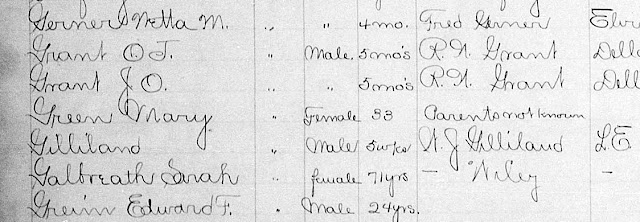 Gerner Netta M. " " 4 mo. Fred Gerner
Grant O J. " Male 5 mo's R. N. Grant
Grant J O. " " 5 mo's R. N. Grant
Green Mary " Female 33 Parents not known
Gilliland " Male 5 wks N. J. Gilliland L.E
Galbreath Sarah " female 71 yrs - Wiley -
Edward F. " Male 24 yrs.